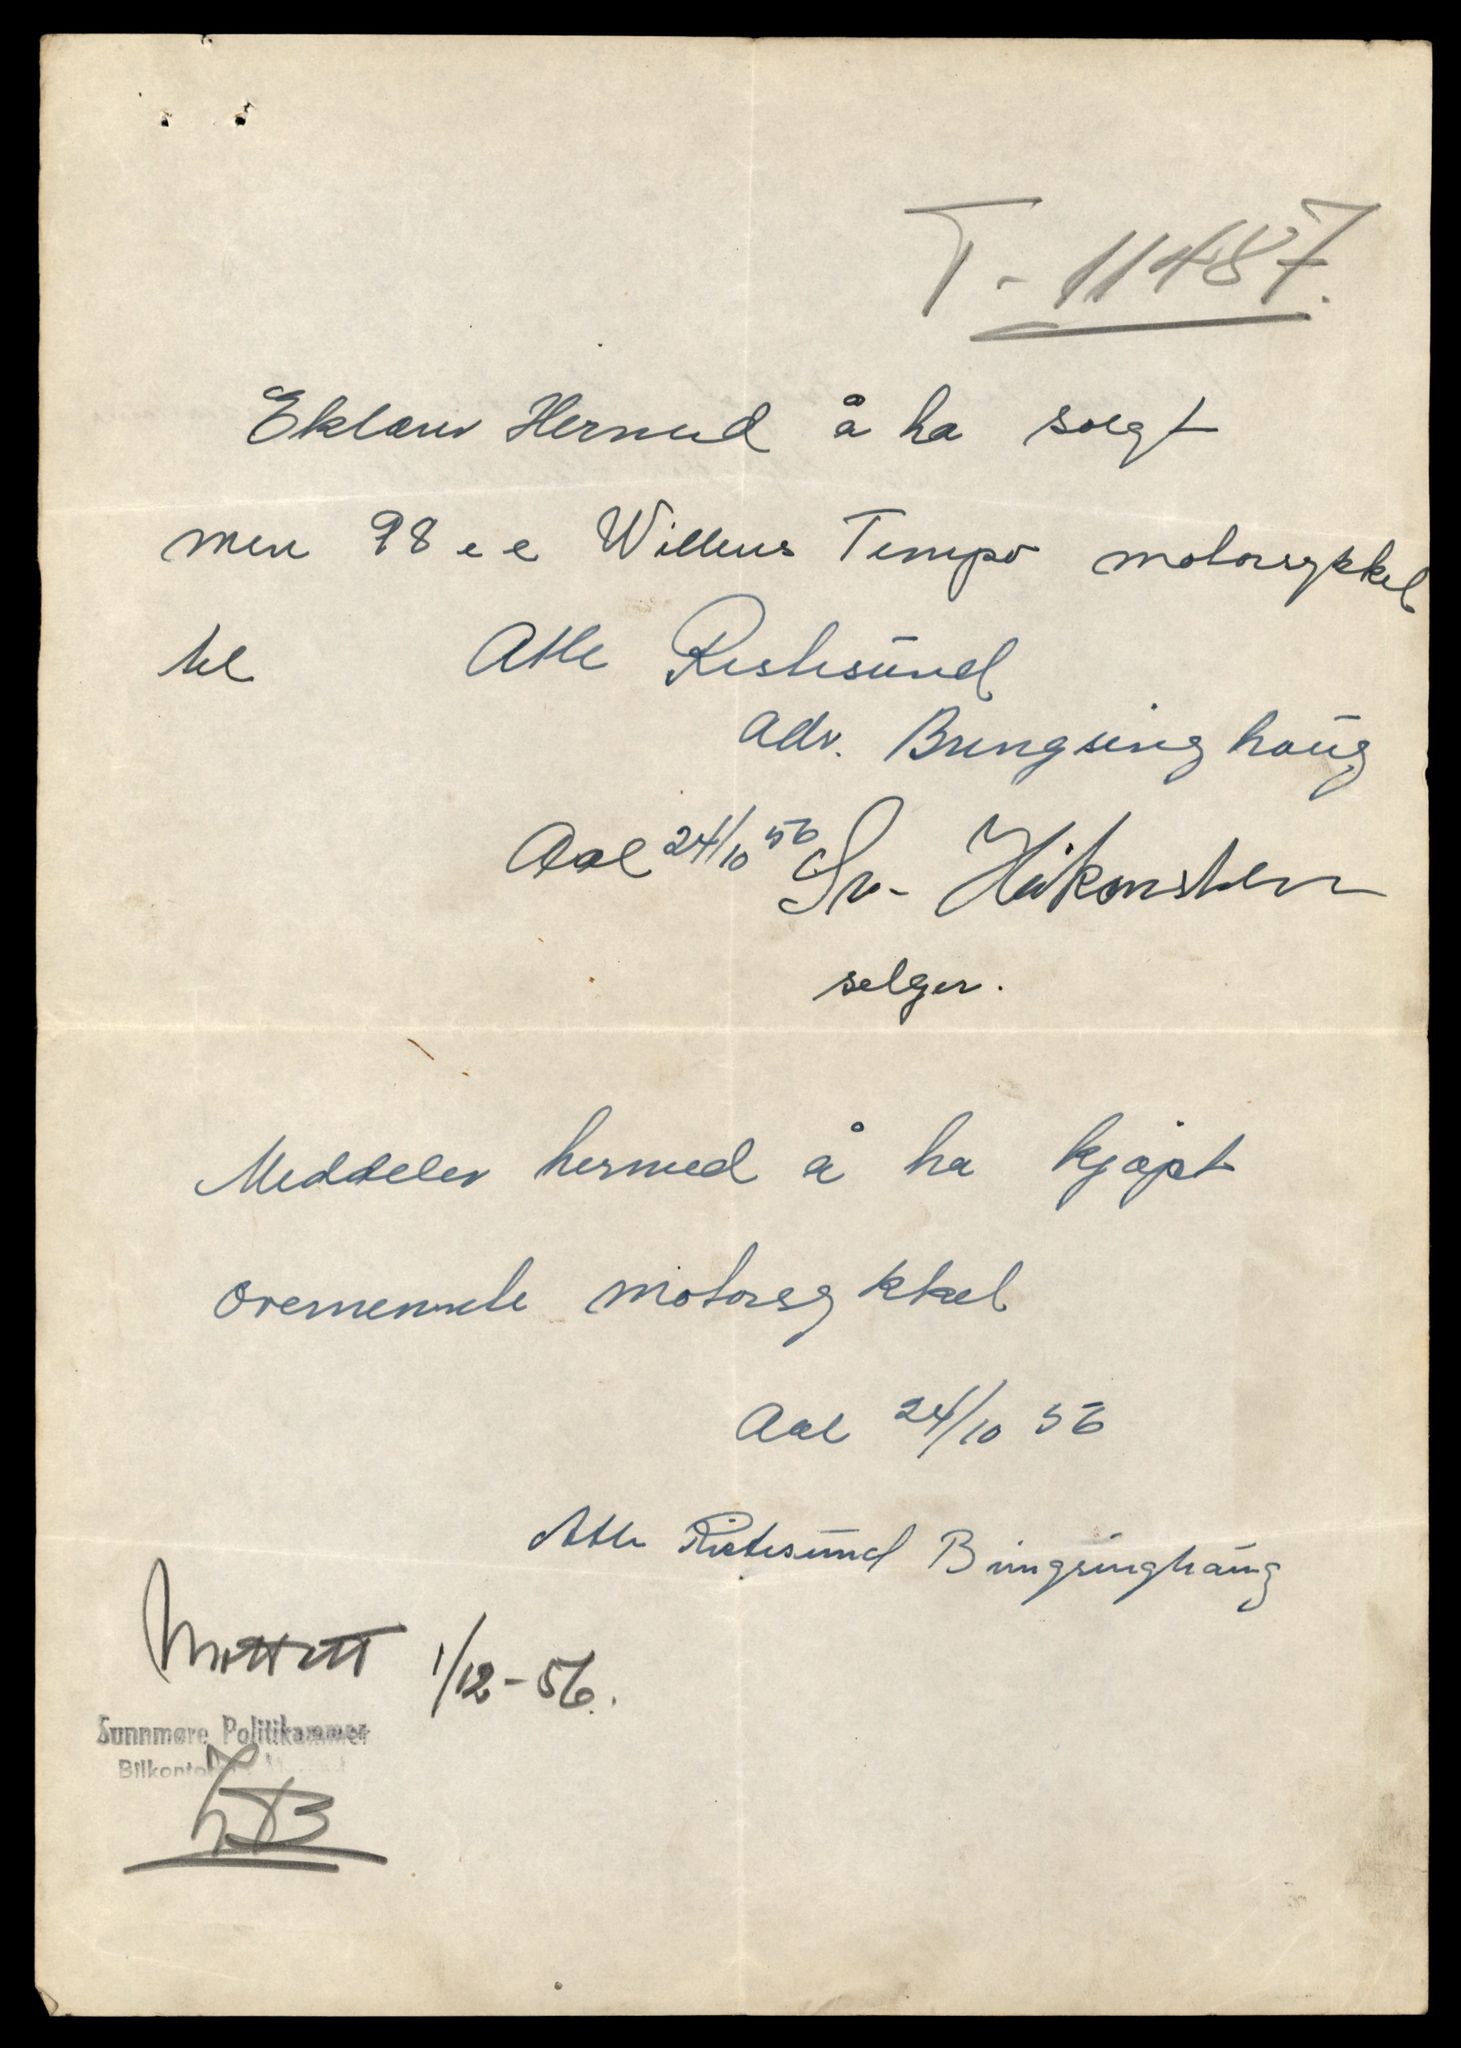 T-11487.
Eklærer Hermed å ha solgt
min 98 cc Villiers Tempo motorsykkel
til Atle Ristesund
Adr. Bringsinghaug
Aal 24/10 56 Sv. Håkonsten
selger.
Meddeler hermed å ha kjøpt
ovennemnte motorsykkel
Aal 24/10 56
Atle Ristesund Bringsinghaug
Mottatt 1/12-56.
Sunnmøre Politikammer